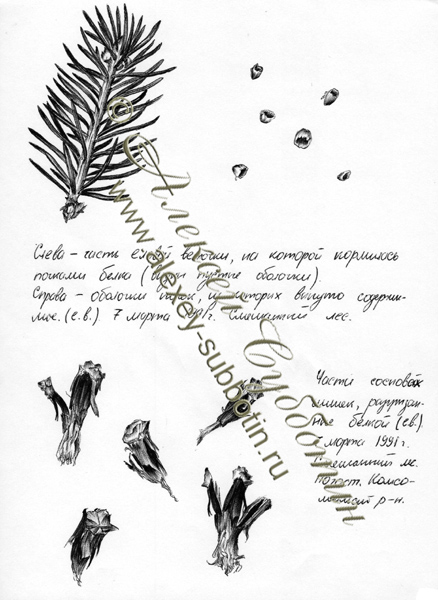 Слева – часть еловой веточки, на которой кормилась
почками белка (видны пустые оболочки).
Справа – оболочки почек, из которых вынуто содержи-
мое. (е.в.) 7 марта 1991г. Смешанный лес.
Части сосновых
шишек,
белкой (е.в.)
7 марта 1991г.
Смешанный лес.
Комсо-
р-н.
© Алексей Субботин
www.alexey-subbotin.ru